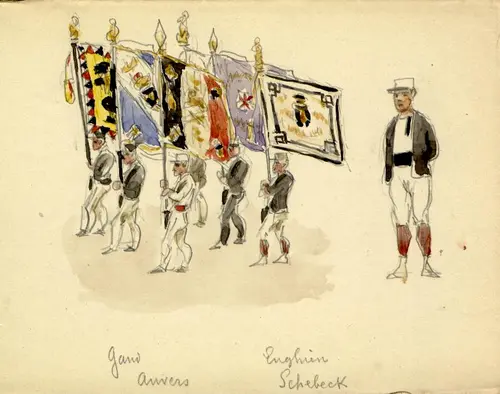 Gand
Anvers
Enghien
Schebeck